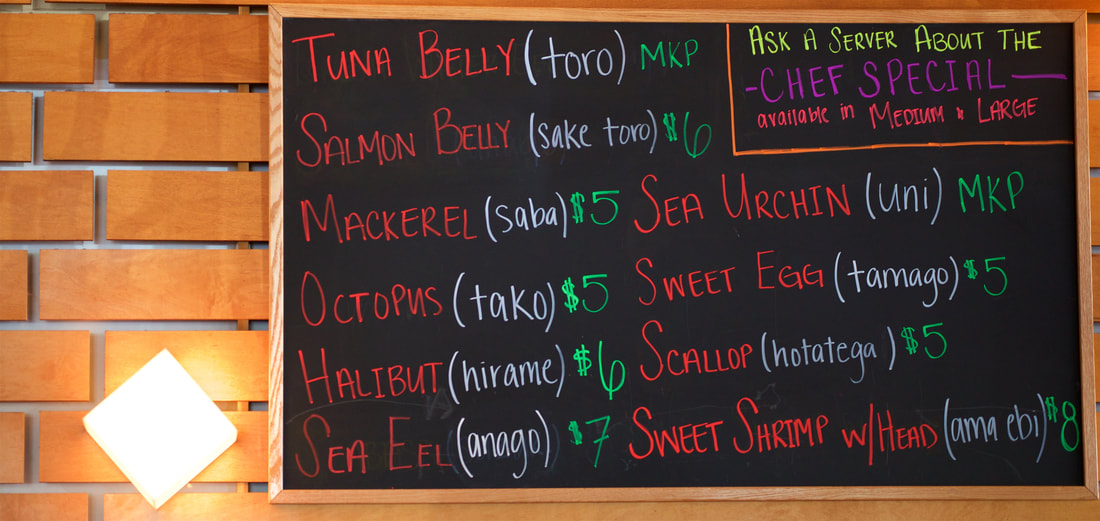 TUNA BELLY (toro) MKP
SALMON BELLY (sake toro) $6
MACKEREL (saba) $5
OCTOPUS (tako) $5
HALIBUT (hirame) $6
SEA EEL (anago) $7
ASK A SERVER ABOUT THE
-CHEF SPECIAL-
available in MEDIUM & LARGE
SEA URCHIN (uni) MKP
SWEET EGG (tamago) $5
SCALLOP (hotatega ) $5
SWEET SHRIMP w/HEAD (ama ebi) $8